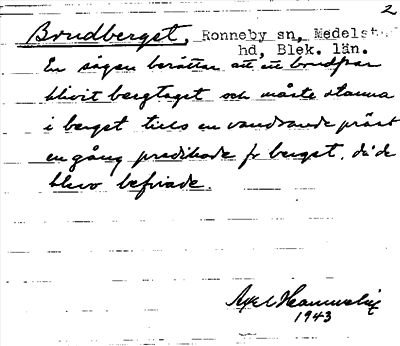 2
Brudberget, Ronneby sn, Medelst
hd, Blek. län.
En sägen berättar att ett brudpar
blivit bergtaget och måste stanna
i berget tills en vandrande präst
en gång predikade fr berget, då de
blevo befriade.
Axel
1943